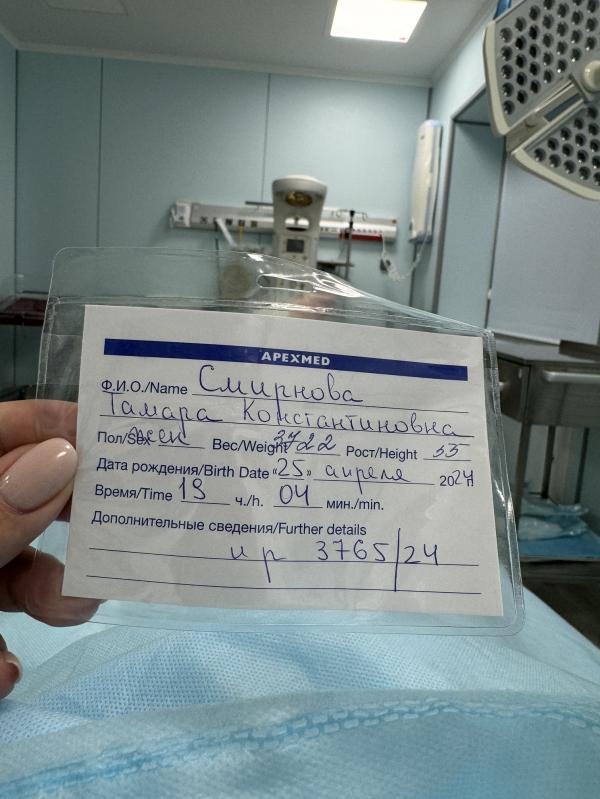 APEXMED
Ф.И.О./Name Смирнова
Тамара Константиновна
Пол/Sex жен Вес/Weight 3722 Рост/Height 53
Дата рождения/Birth Date «25» апреля 2024
Время/Time 19 ч./h. 04 мин./min.
Дополнительные сведения/Further details
и р 3765/24